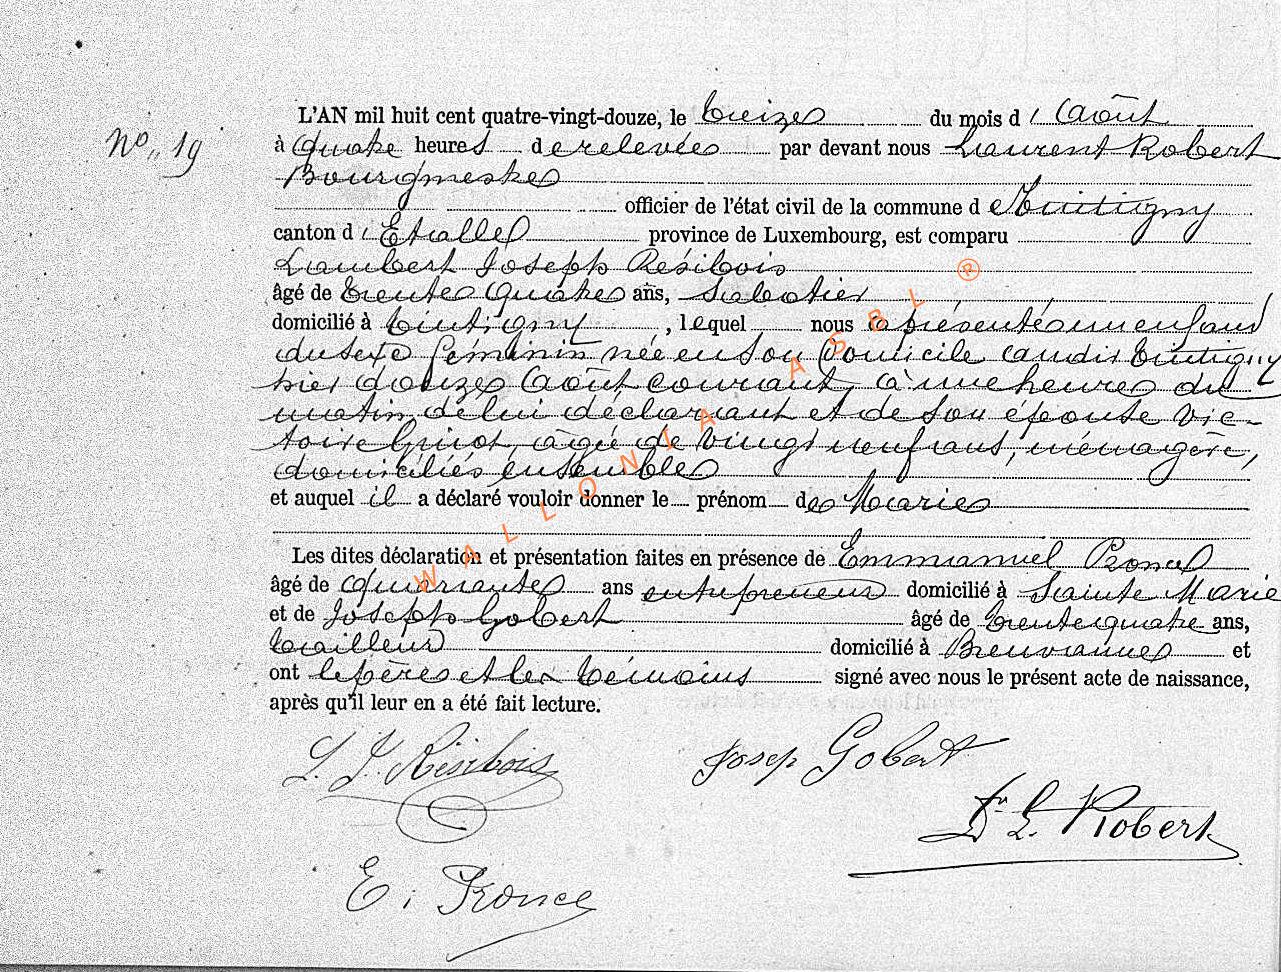 L'AN mil huit cent quatre-vingt-douze, le treize du mois d' Août
No 19
à quatre heures de relevée par devant nous Laurent Robert
Bourgmestre
officier de l'état civil de la commune de Tintigny
canton d' Etalle province de Luxembourg, est comparu
Lambert Joseph Résibois
âgé de trente quatre ans, Sabotier
domicilié à Tintigny, lequel nous a présenté un enfant
du sexe féminin née en son domicile audit Tintigny
hier douze Août courant, à une heure du
matin, de lui déclarant et de son épouse Vic-
toire, âgée de vingt neuf ans, ménagère,
domiciliés ensemble
et auquel il a déclaré vouloir donner le prénom de Marie
Les dites déclaration et présentation faites en présence de Emmanuel Ronce
âgé de quarante ans entrepreneur domicilié à Sainte Marie
et de Joseph Gobert âgé de trente quatre ans,
tailleur domicilié à Breuvanne et
ont le père et les témoins signé avec nous le présent acte de naissance,
après qu'il leur en a été fait lecture.
L. J. Résibois
Josep Gobert
Dr L. Robert
E. Ronce
WALLONIA ASBL ®